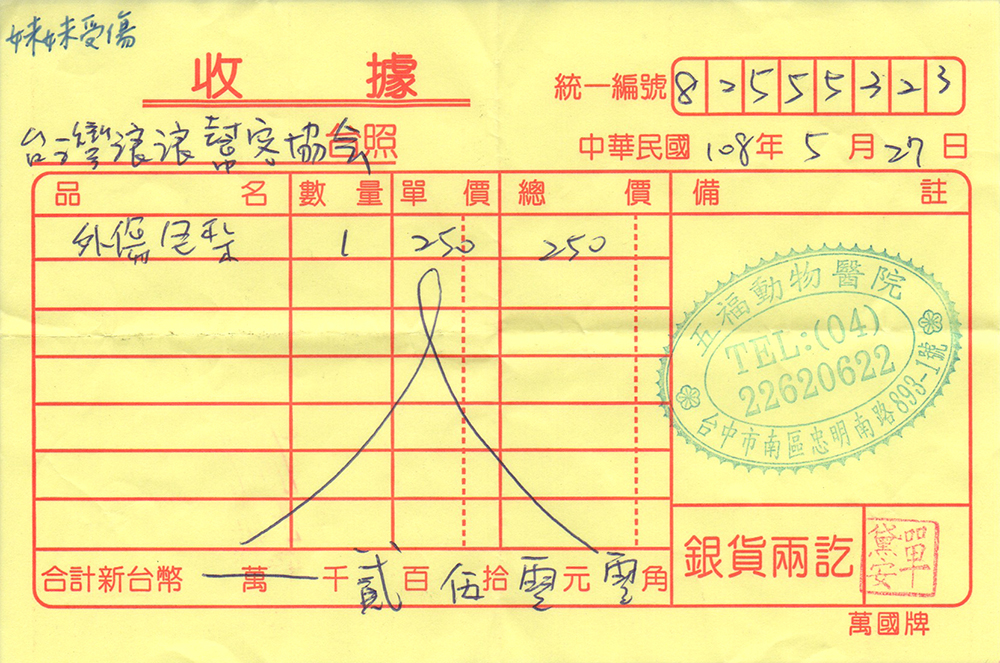 妹妹受傷
收據
統一編號 82555323
台灣浪浪幫客協會 台照
中華民國 108 年 5 月 27 日
品名 數量 單價 總價 備註
外傷 1 250 250
五福動物醫院
TEL:(04)
22620622
台中市南區忠明南路893-1號
合計新台幣 萬 千 貳 百 伍 拾 零 元 零 角
銀貨兩訖
單黛安
萬國牌